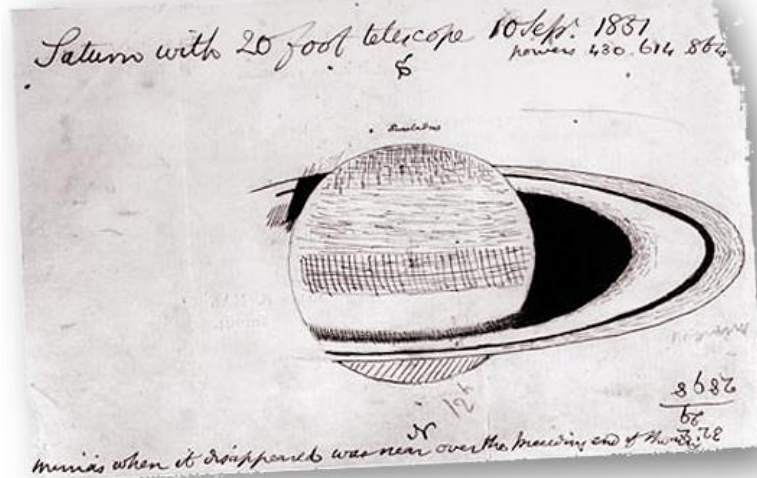 Saturn with 20 foot telescope 10 Sept. 1851
powers 430. 614. 864
S
Enceladus
12h
N
Mimas when it disappeared was near over the preceding end of the